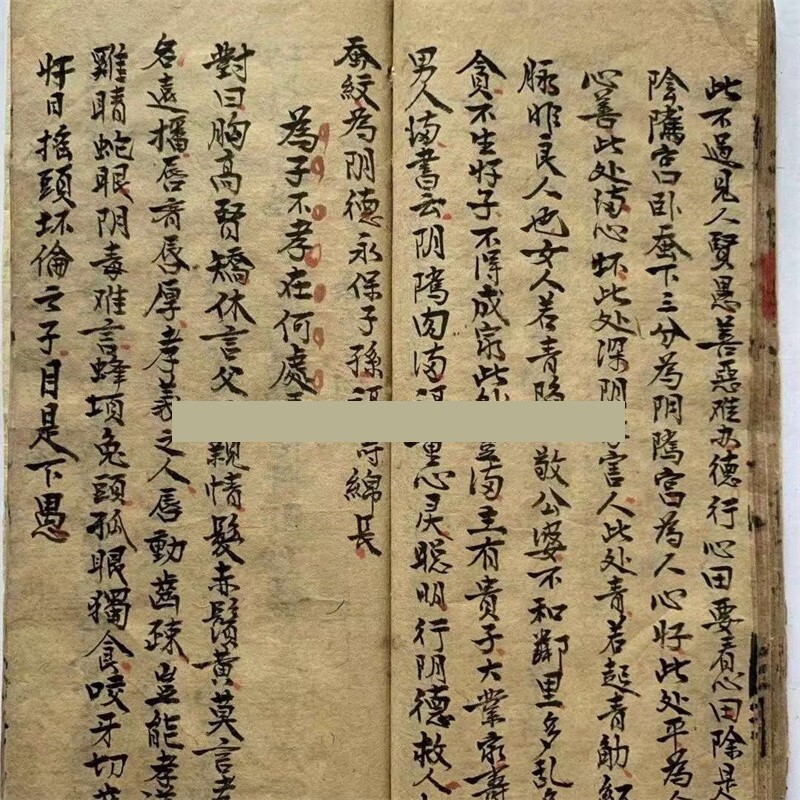 此不過見人賢愚善惡难办德行心田要看心田除是
陰隲宮卧蚕下三分為阴隲宮為人心好此处平為人
心善此处满心坏此处深阴害人此处青若起青觔紅
脉唯良人也女人若青敬公婆不和鄰里多乱
貪不生好子不得成家此处豐满主有貴子大業家壽
男人满書云阴隲肉满心灵聰明行阴德救人
蚕紋為阴德永保子孫壽綿長
為子不孝在何處
對曰胸高臀矯休言父親情髮赤鬚黄莫言孝
名遠播唇青唇厚孝義之人唇動齒疎豈能孝道
雞睛蛇眼阴毒难言蜂項兔頭孤眼獨食咬牙切齒
奸曰摇頭坏倫之子目是下愚